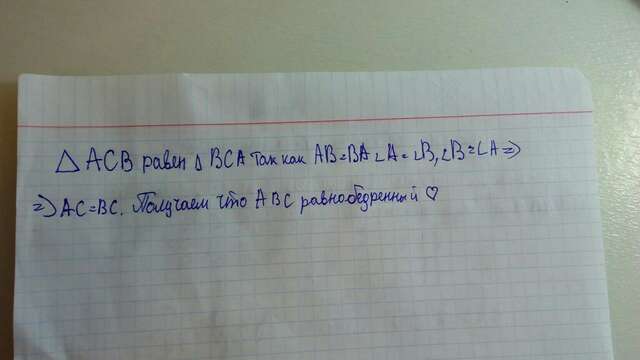 △ ACB равен △ BCA так как AB=BA ∠A=∠B, ∠B=∠A =>
=> AC=BC. Получаем что ABC равнобедренный ♡